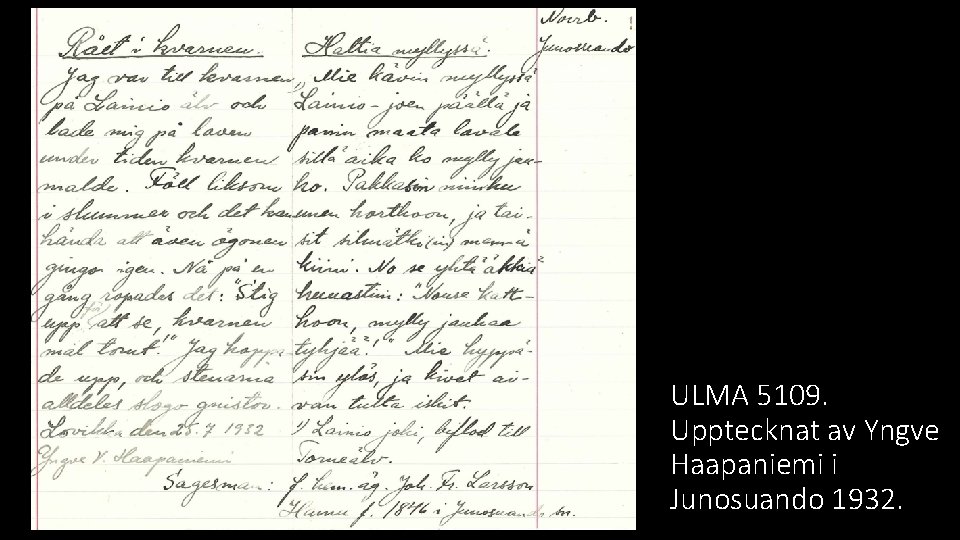 Norrb. !
Junosuando
Rået i kvarnen.
Jag var till kvarnen
på Lainio älv och
lade mig på laven
under tiden kvarnen
malde. Föll liksom
i slummer och det kan
hända att även ögonen
gingo igen. Nå på en
gång ropades det: "Stig
upp för att se, kvarnen
mal tomt!" Jag hoppa-
de upp, och stenarna
alldeles slogo gnistor.
Lovikka den 25. 7 1932
Yngve V. Haapaniemi
Haltia myllyssä.
"Mie kävin myllyssä
Lainio-joen päällä ja
panin maata lavale
sillä aika ko mylly jau-
ho. Pakkasin niinku
unen horthoon, ja tai-
sit silmätki(in) mennä
kiini. No se yhtä'äkkiä
huuastiin: "Nouse katt-
hoon, mylly jauhaa
tyhjää!" Mie hyppä-
sin ylös, ja kivet ai-
van tulta iskit.
1) Lainio joki, biflod till
Torneälv.
Sagesman: f. hem. äg. Joh. Fr. Larsson
f. 1876 i Junosuando sn.
ULMA 5109.
Upptecknat av Yngve
Haapaniemi i
Junosuando 1932.